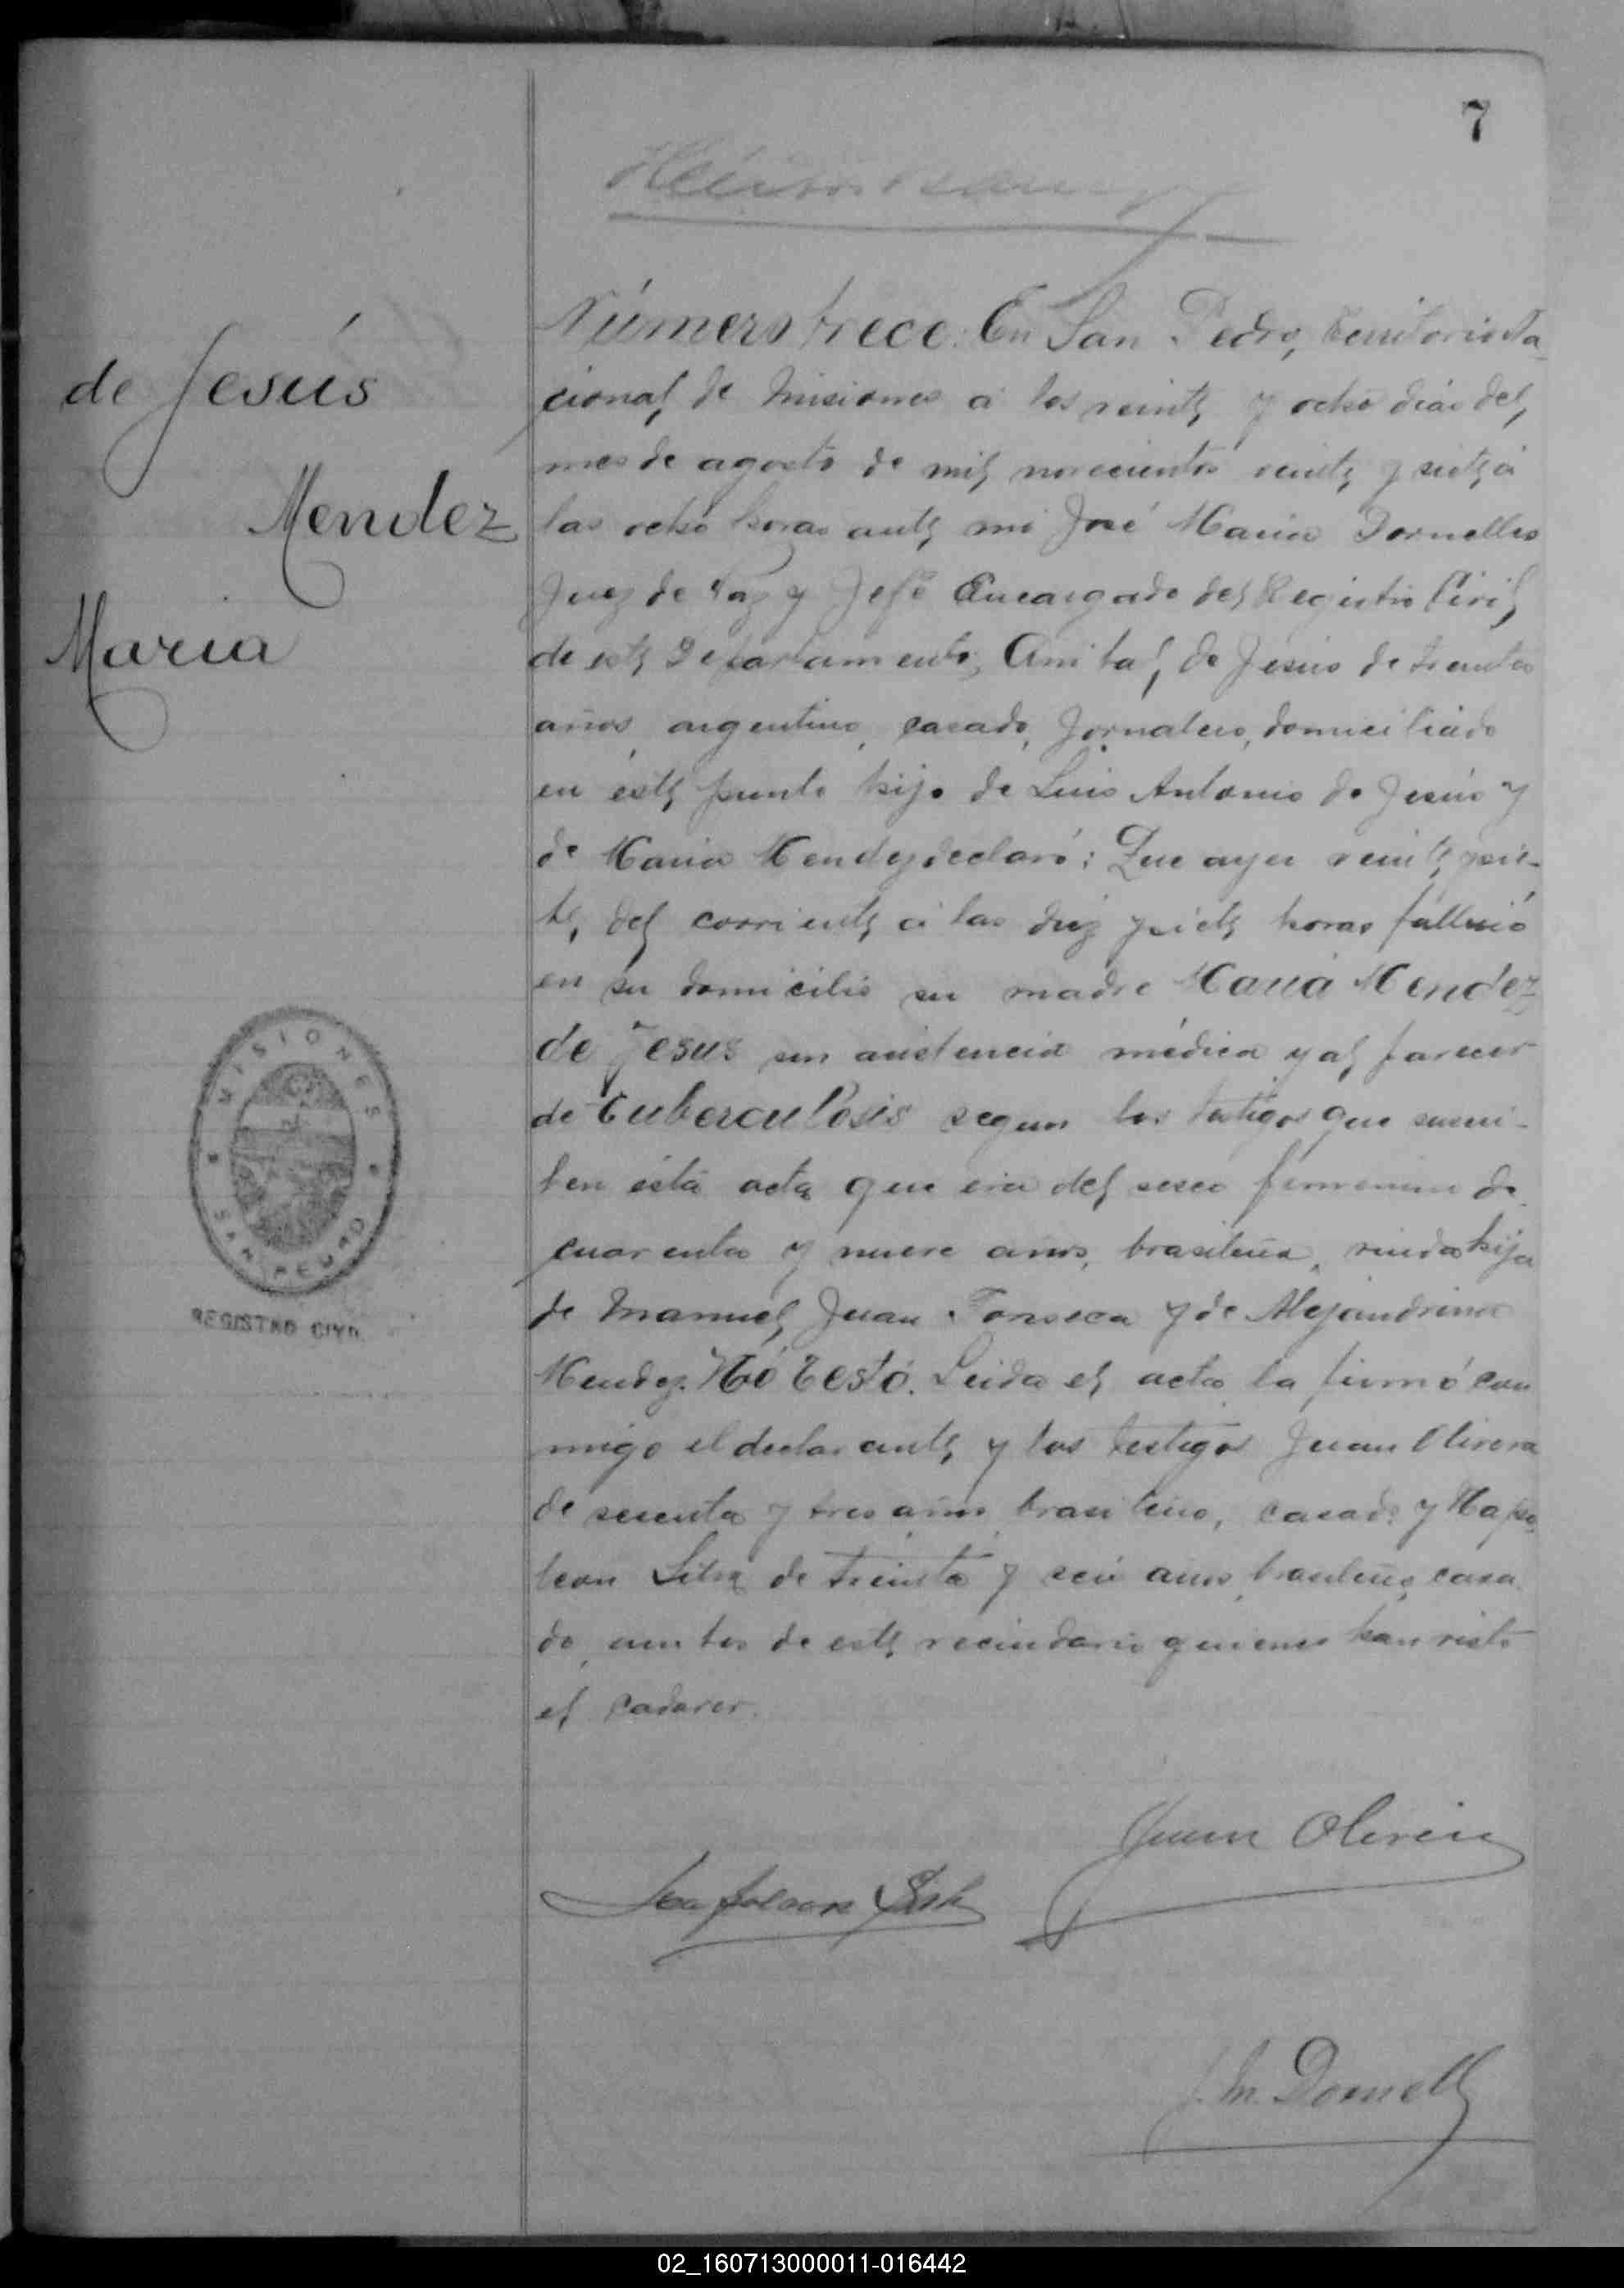 7
de Jesús
Mendez
Maria
Número trece. En San Pedro, Territorio Na-
cional de Misiones a los veinte y ocho dias del
mes de agosto de mil novecientos veinte y siete, á
las ocho horas ante mi José Maria Dornelles
Juez de Paz y Jefe Encargado del Registro Civil
de este Departamento, de Jesús de treinta
años, argentino, casado, Jornalero, domiciliado
en éste punto hijo de Luis Antonio de Jesús y
de Maria Mendez declaró: Que ayer veinte y sie-
te, del corriente á las diez y siete horas falleció
en su domicilio su madre Maria Mendez
de Jesus sin asistencia médica y al parecer
de tuberculosis segun los testigos que suscri-
ben ésta acta que era del sexo femenino de
cuarenta y nueve años, brasileña, viuda hija
de Manuel Juan Fonseca y de Alejandrina
Mendez. Nó testó. Leida el acta la firmó con
migo el declarante y los testigos Juan Olivera
de sesenta y tres años brasileño, casado y Napo
leon de treinta y seis años, brasileño, casa
do, ambos de este vecindario quienes han visto
el cadaver.
MISIONES
SAN PEDRO
REGISTRO CIVIL
Juan Olivera
Napoleon
J. M. Dornelles
02_160713000011-016442